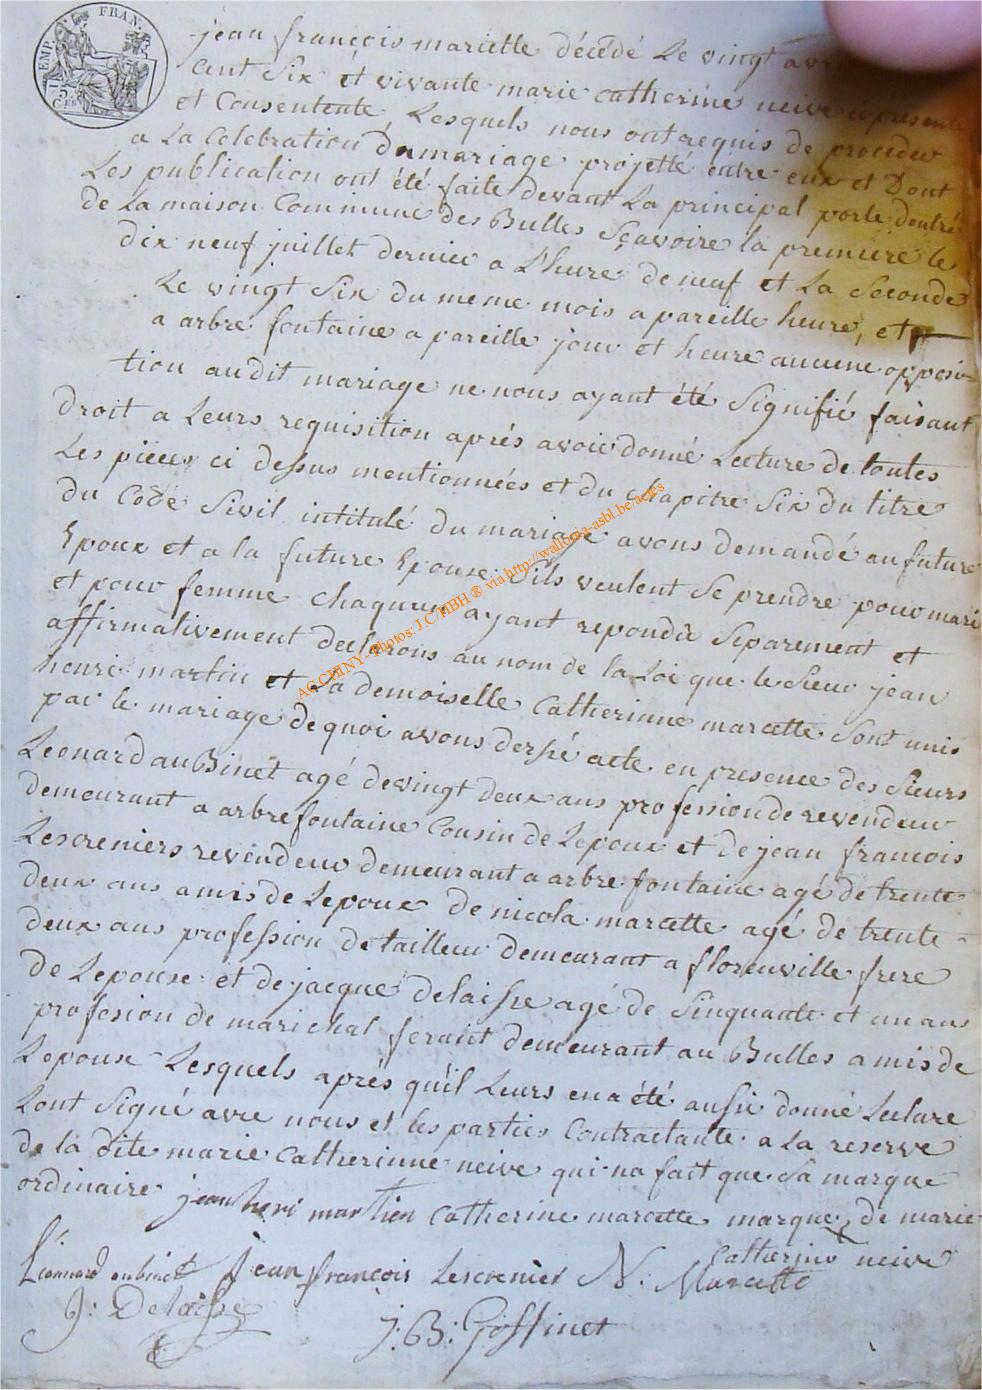 EMP. FRAN.
jean françois marcette décédé Le vingt
cent Six et vivante marie catherine neive ci presente
et Consentente, Lesquels nous ont requis de proceder
a La Celebration du mariage projetté entre eux et Dont
Les publication ont été faite devant La principal porte dentré
de La maison Commune des Bulles Sçavoire la premiere le
dix neuf juillet dernier a L'heure de neuf et La Seconde
Le vingt Six du meme mois a pareille heure, et
a arbre fontaine a pareille jour et heure aucune opposi-
tion au dit mariage ne nous ayant été Signifié faisant
droit a Leurs requisition aprés avoir donné Lecture de toutes
Les pieces ci dessus mentionnées et du chapitre Six du titre
du Code Sivil intitulé du mariage avons demandé au future
Epoux et a la future Epouse s'ils veulent Se prendre pour mari
et pour femme chaqun ayant repondu Separement et
affirmativement declarons au nom de la Loi que le Sieur jean
henri martin et La demoiselle Catherinne marcette Sont unis
par le mariage de quoi avons dersé acte en presence des Sieurs
Leonard au Binet agé de vingt deux ans profession de revendeur
demeurant a arbrefontaine Cousin de Lepoux et de jean francois
Lescreniers revendeur demeurant a arbre fontaine agé de trente
deux ans amis de Lepoux de nicola marcette agé de trente
deux ans profession de tailleur demeurant a florenville frere
de Lepouse et de jacque delaisse agé de Sinquante et un ans
profesion de marichal ferant demeurant au Bulles amis de
Lepoux Lesquels aprés qu'il Leurs en a été ausie donné Lecture
Lont Signé avec nous et les parties Contractante a La reserve
de la dite marie Catherinne neive qui na fait que Sa marque
ordinaire jean henri martien catherine marcette marque de marie
Catherine neive
Léonnard aubinet Jean françois Lescrenier N. Marcette
J: Delaisse J: B: Goffinet
AGCHINY - Photos: J.C/HBH ® via http://wallonia-asbl.be/actes